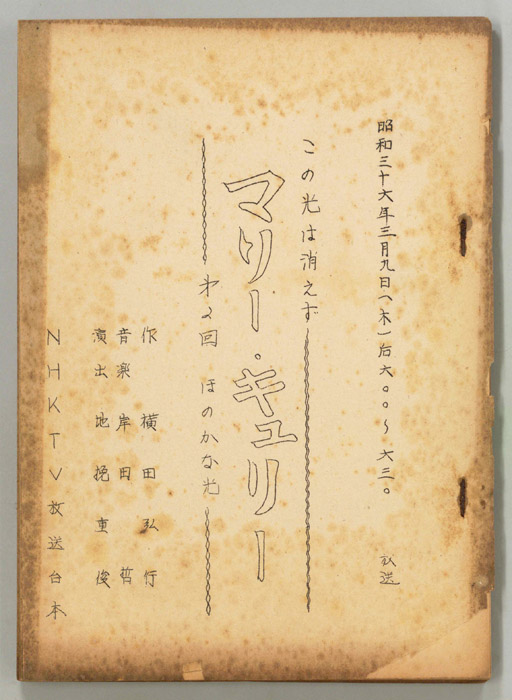 昭和三十六年三月九日(木)后六。。〜六三。 放送
この光は消えず
マリー・キュリー
第2回 ほのかな光
作 横田弘行
音楽 岸田哲
演出 地挽重俊
NHKTV放送台本